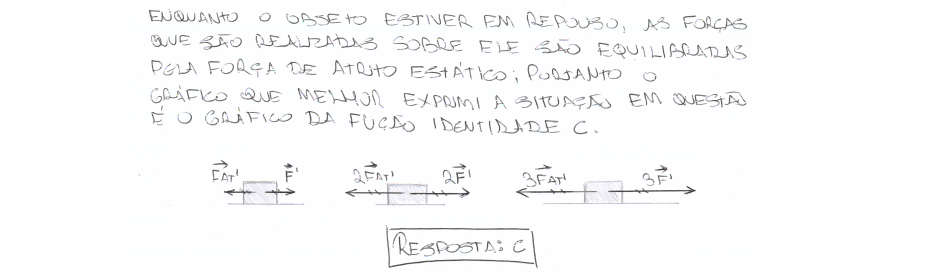 ENQUANTO O OBJETO ESTIVER EM REPOUSO, AS FORÇAS
QUE SÃO REALIZADAS SOBRE ELE SÃO EQUILIBRADAS
PELA FORÇA DE ATRITO ESTÁTICO; PORTANTO O
GRÁFICO QUE MELHOR EXPRIMI A SITUAÇÃO EM QUESTÃO
É O GRÁFICO DA FUÇÃO IDENTIDADE C.
FAT' F' 2FAT' 2F' 3FAT' 3F'
RESPOSTA: C